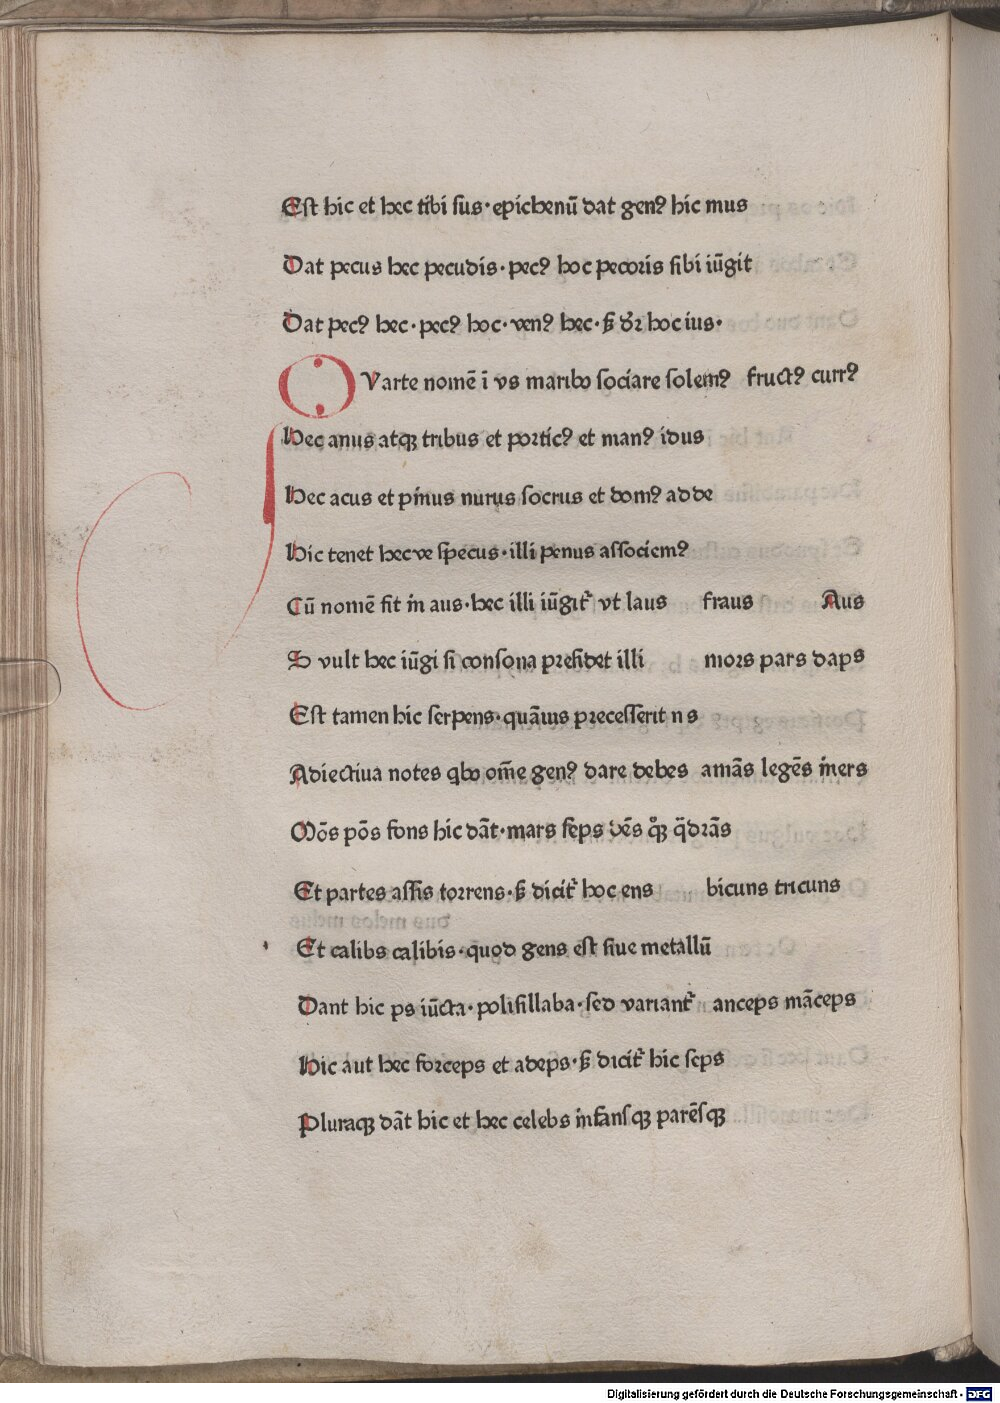 Est hic et hec tibi sus· epichenū dat genꝰ hic mus
Dat pecus hec pecudis· pecꝰ hoc pecoris sibi iūgit
Dat pecꝰ hec· pecꝰ hoc· venꝰ hec· hoc ius·
Quarte nomē ī vs maribꝫ sociare solemꝰ fructꝰ currꝰ
Hec anus atqꝫ tribus et porticꝰ et manꝰ idus
Hec acus et pinus nurus socrus et domꝰ adde
Hic tenet hecve specus· illi penus associemꝰ
Cū nomē fit in aus· hec illi iūgit᷑ vt laus fraus Aus
S vult hec iūgi si consona presidet illi mors pars daps
Est tamen hic serpens· quāuis precesserit n s
Adiectiua notes qbꝫ om̄e genꝰ dare debes amās legēs iners
Mōs pōs fons hic dāt· mars seps dēs qꝫ q̄drās
Et partes assis torrens· sꝫ dicit᷑ hoc ens bicuns tricuns
Et calibs calibis· quod gens est siue metallū
Dant hic ps iūcta· polisillaba· sed variant᷑ anceps māceps
Hic aut hec forceps et adeps· sꝫ dicit᷑ hic seps
Pluraqꝫ dāt hic et hec celebs infansqꝫ parēsqꝫ
Digitalisierung gefördert durch die Deutsche Forschungsgemeinschaft - DFG